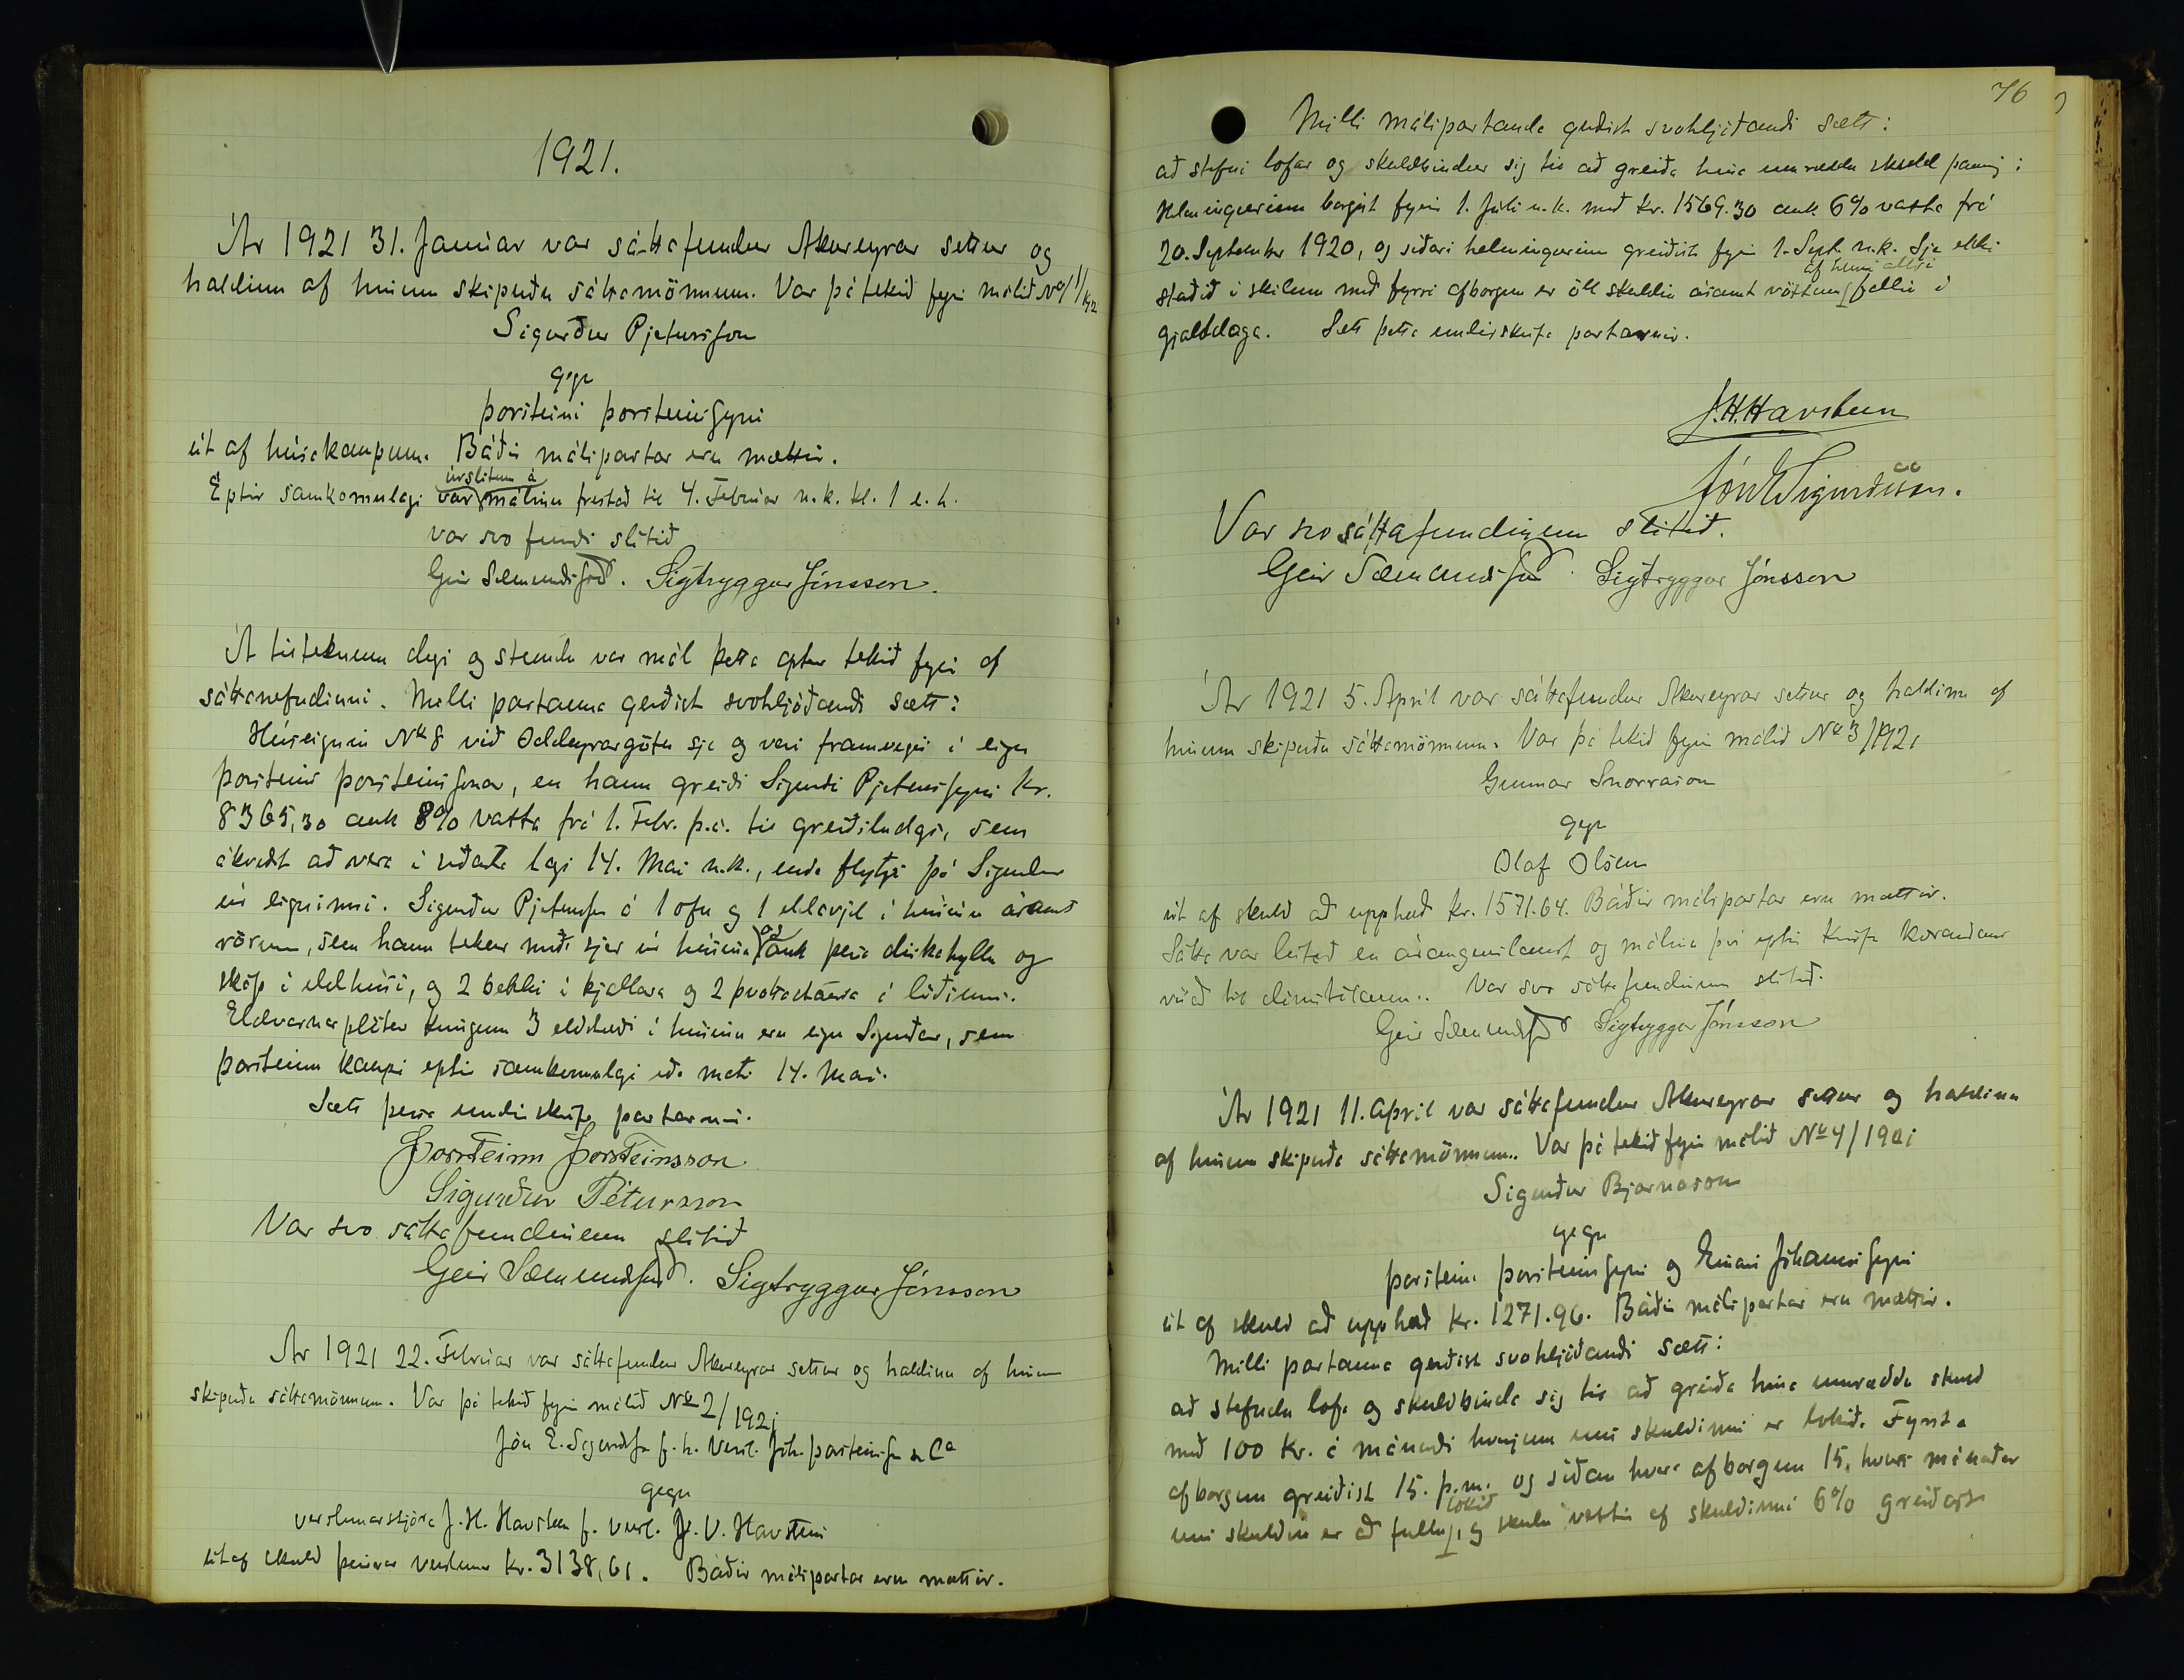 1921.
Ár 1921 31. Janúar var sáttafundur Akureyrar settur og
haldinn af hinum skipuðu sáttamönnum. Var þá tekið fyrir málið No 1/1921
Sigurður Pjetursson
gegn
Þorsteini Þorsteinssyni
út af húsakaupum. Báðir málspartar eru mættir.
úrslitum á
Eptir samkomulagi var málinu frestað til 4. Febrúar n.k. kl. 1 e.h.
var svo fundi slitið
Geir Sæmundsson. Sigtryggur Jónsson.
Á tilteknum degi og stundu var mál þetta aptur tekið fyrir af
sáttanefndinni. Milli partanna gerðist svohljóðandi sætt:
Húseignin No 8 við Oddeyrargötu sje og veri framvegis í eigu
Þorsteins Þorsteinssonar, en hann greiði Sigurði Pjeturssyni kr.
8365,30 auk 8% vaxta frá 1. Febr. þ.á. til greiðsludags, sem
ákveðst að vera í síðasta lagi 14. Maí n.k., enda flytji þá Sigurður
úr eigninni. Sigurður Pjetursson á 1 ofn og 1 eldavjel í húsinu ásamt
og
rörum, sem hann tekur með sjer úr húsinu auk þess diskahyllu og
skáp í eldhúsi, og 2 bekki í kjallara og 2 þvottastampa í
Eldvarnarplötur kringum 3 eldstæði í húsinu eru eign Sigurðar, sem
Þorsteinn kaupi eptir samkomulagi eða mati 14. Maí.
Sætt þessa undirskrifa partarnir.
Þorsteinn Þorsteinsson
Sigurður Pétursson
Var svo sáttafundinum slitið
Geir Sæmundsson. Sigtryggur Jónsson
Ár 1921 22. Febrúar var sáttafundur Akureyrar settur og haldinn af hinum
skipuðu sáttamönnum. Var þá tekið fyrir málið No 2/1921
Jón E. Sigurðsson f.h. Versl. Jóh. Þorsteinsson & Co
gegn
verslunarstjóra J. H. Havsteen f. versl. J. V. Havsteen
út af skuld þeirrar verslunar kr. 3138,61. Báðir málspartar eru mættir.
76
Milli málspartanna gerðist svohljóðandi sætt:
að stefndi lofar og skuldbindur sig til að greiða hina umræddu skuld þannig:
Helmingurinn borgist fyrir 1. Júlí n.k. með kr. 1569.30 auk 6% vaxta frá
20. September 1920, og síðari helmingurinn greiðist fyrir 1. Sept. n.k. Sje ekki
af henni allri
staðið í skilum með fyrri afborgun er öll skuldin ásamt vöxtum fallin í
gjalddaga. Sætt þetta undirskrifa partarnir.
J. H. Havsteen
Jón E Sigurðsson.
Var svo sáttafundinum slitið.
Geir Sæmundsson. Sigtryggur Jónsson
Ár 1921 5. Apríl var sáttafundur Akureyrar settur og haldinn af
hinum skipuðu sáttamönnum. Var þá tekið fyrir málið No 3/1921
Gunnar Snorrason
gegn
Olaf Olsen
út af skuld að upphæð kr. 1571.64. Báðir málspartar eru mættir.
Sátta var leitað en árangurslaust og málinu því eptir kröfu kærandans
vísað til dómstólanna. Var svo sáttafundinum slitið.
Geir Sæmundsson Sigtryggur Jónsson
Ár 1921 11. apríl var sáttafundur Akureyrar settur og haldinn
af hinum skipuðu sáttamönnum. Var þá tekið fyrir málið No 4/1921
Sigurður Bjarnason
gegn
Þorsteini Þorsteinssyni og Einari Jóhannssyni
út af skuld að upphæð kr. 1271.96. Báðir málspartar eru mættir.
Milli partanna gerðist svohljóðandi sætt:
að stefndu lofa og skuldbinda sig til að greiða hina umræddu skuld
með 100 kr. á mánuði hverjum uns skuldinni er lokið. Fyrsta
afborgun greiðist 15. þ.m. og síðan hver afborgun 15. hvers mánaðar
lokið
uns skuldin er að fullu, og skulu vextir af skuldinni 6% greiðast